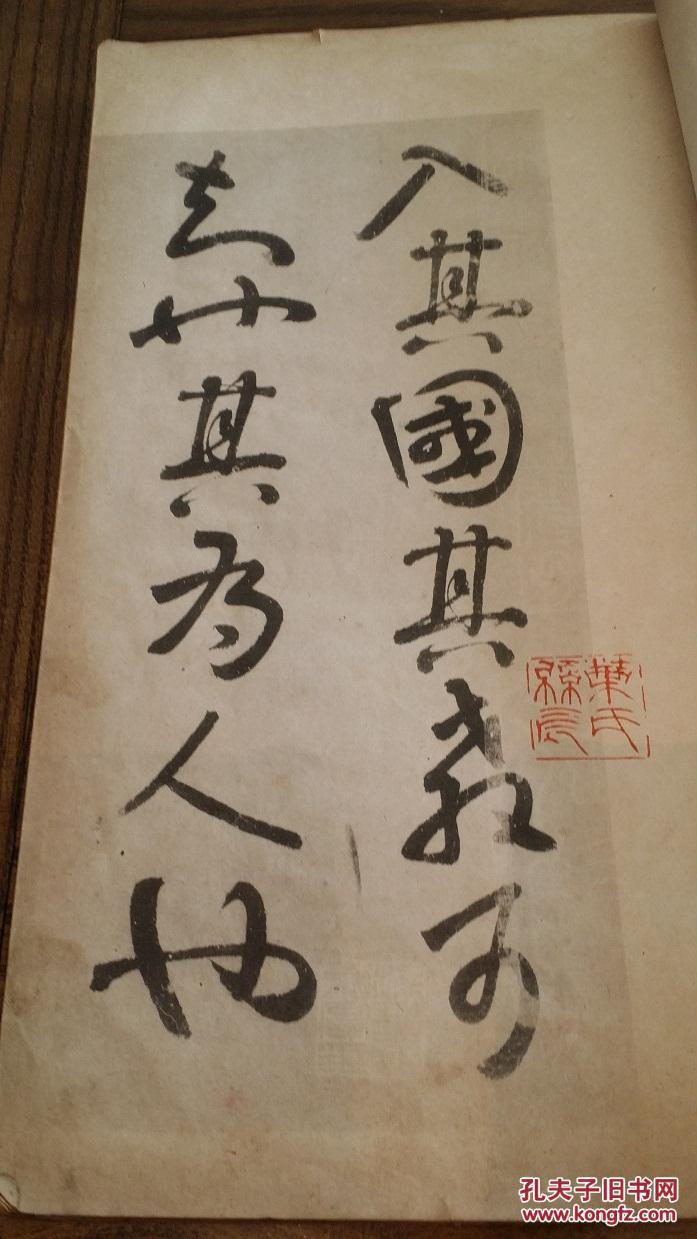 入其國其教可
知也其為人也
孔夫子旧书网
www.kongfz.com